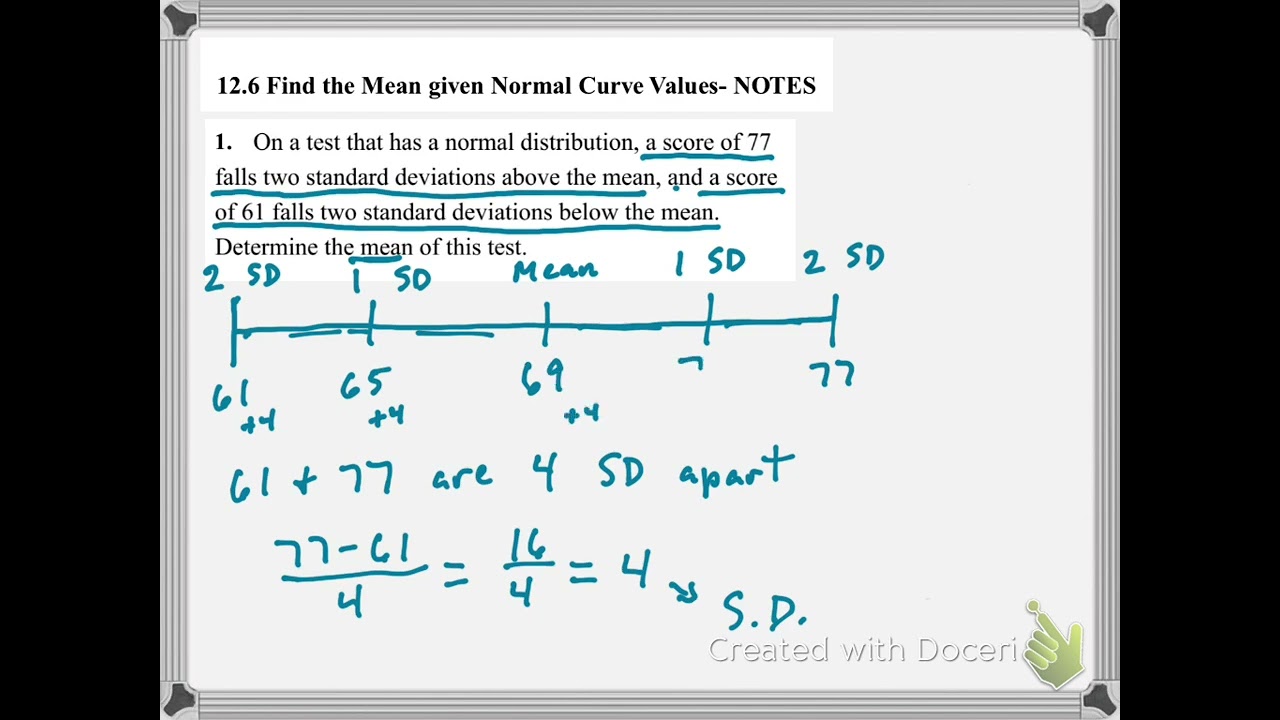 12.6 Find the Mean given Normal Curve Values- NOTES
1. On a test that has a normal distribution, a score of 77
falls two standard deviations above the mean, and a score
of 61 falls two standard deviations below the mean.
Determine the mean of this test.
2 SD 1 SD Mean 1 SD 2 SD
61 65 69 7 77
+4 +4 +4
61 + 77 are 4 SD apart
77-61/4 = 16/4 = 4 → S.D.
Created with Doceri